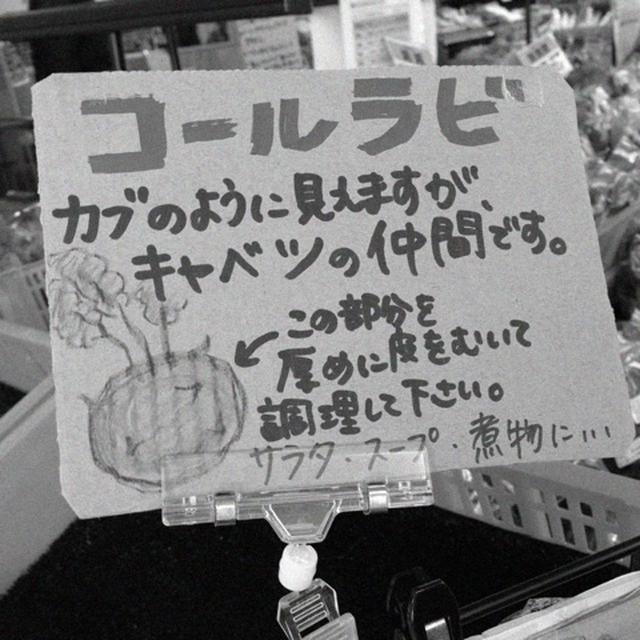 コールラビ
カブのように見えますが、
キャベツの仲間です。
この部分を
厚めに皮をむいて
調理して下さい。
サラダ・スープ・煮物に…